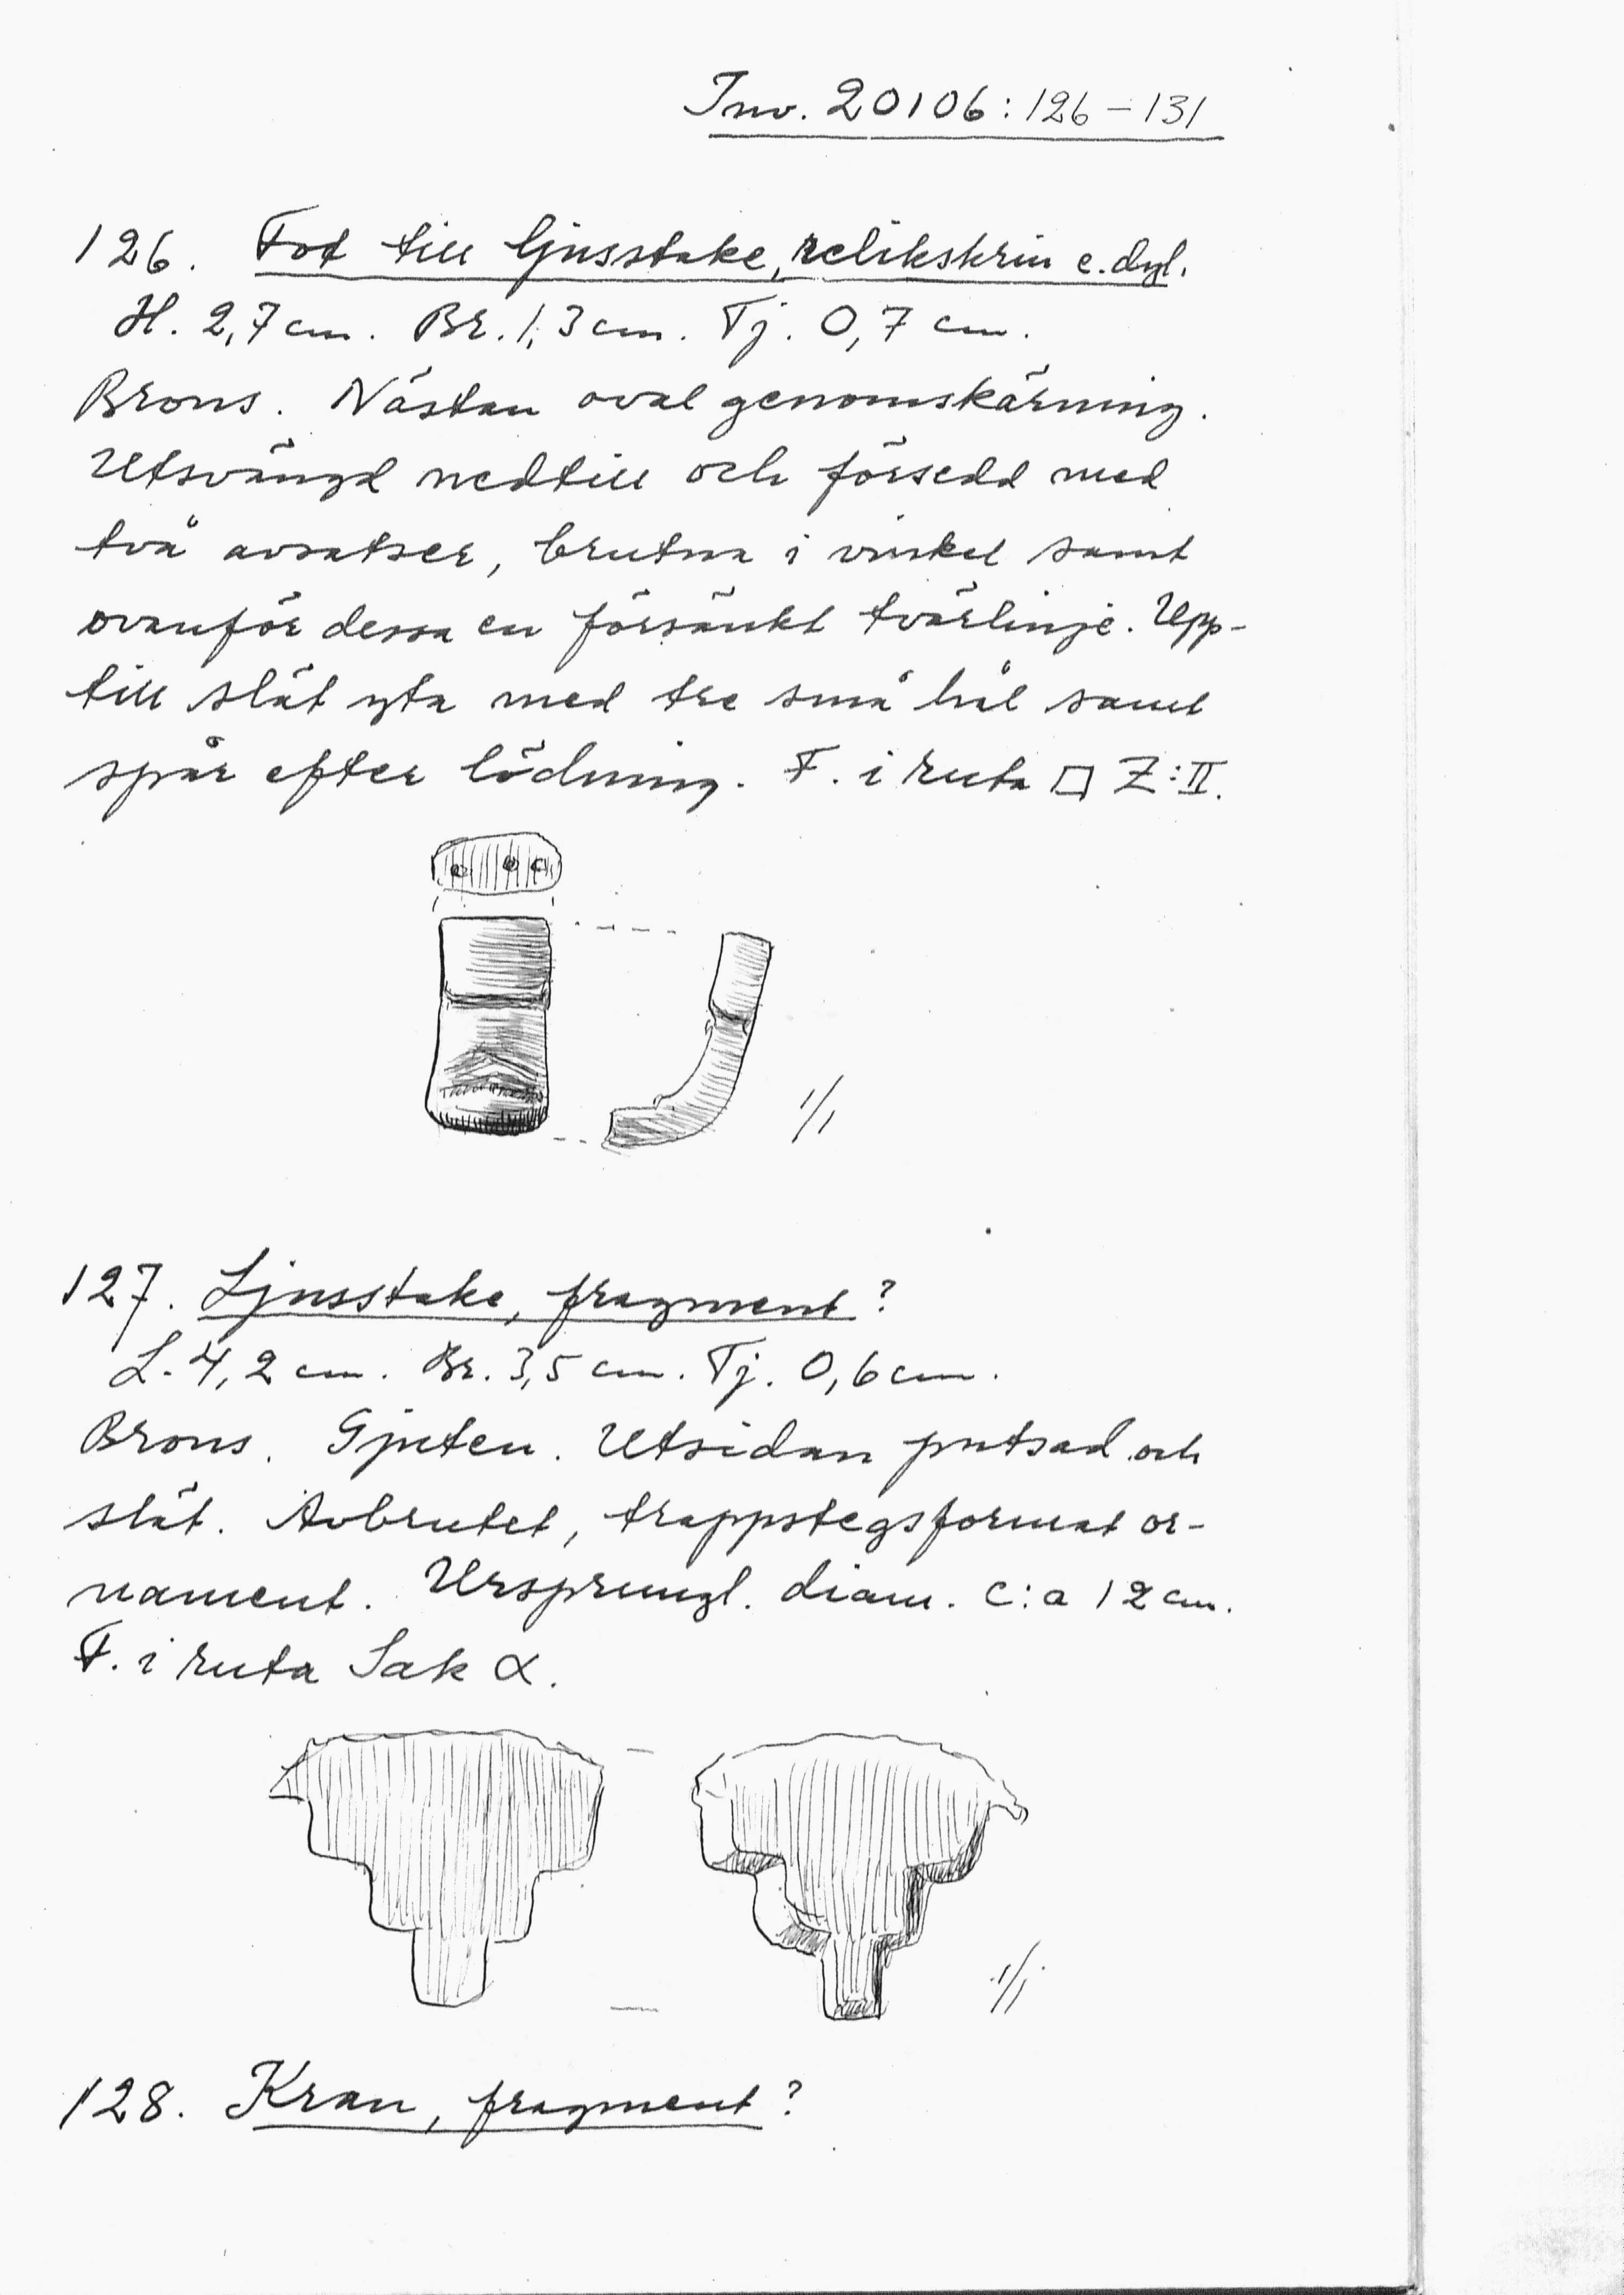 Inv. 20106:126–131
126. Fot till ljusstake, relikskrin e.dyl.
H. 2,7 cm. Br. 1,3 cm. Tj. 0,7 cm.
Brons. Nästan oval genomskärning.
Utsvängd nedtill och försedd med
två avsatser, brutna i vinkel samt
ovanför dessa en försänkt tvärlinje. Upp-
till slät yta med tre små hål samt
spår efter lödning. F. i ruta □ Z:II.
1/1
127. Ljusstake, fragment?
L. 4,2 cm. Br. 3,5 cm. Tj. 0,6 cm.
Brons. Gjuten. Utsidan putsad och
slät. Avbrutet, trappstegsformat or-
nament. Ursprungl. diam. c:a 12 cm.
F. i ruta Sak α.
1/1
128. Kran, fragment?